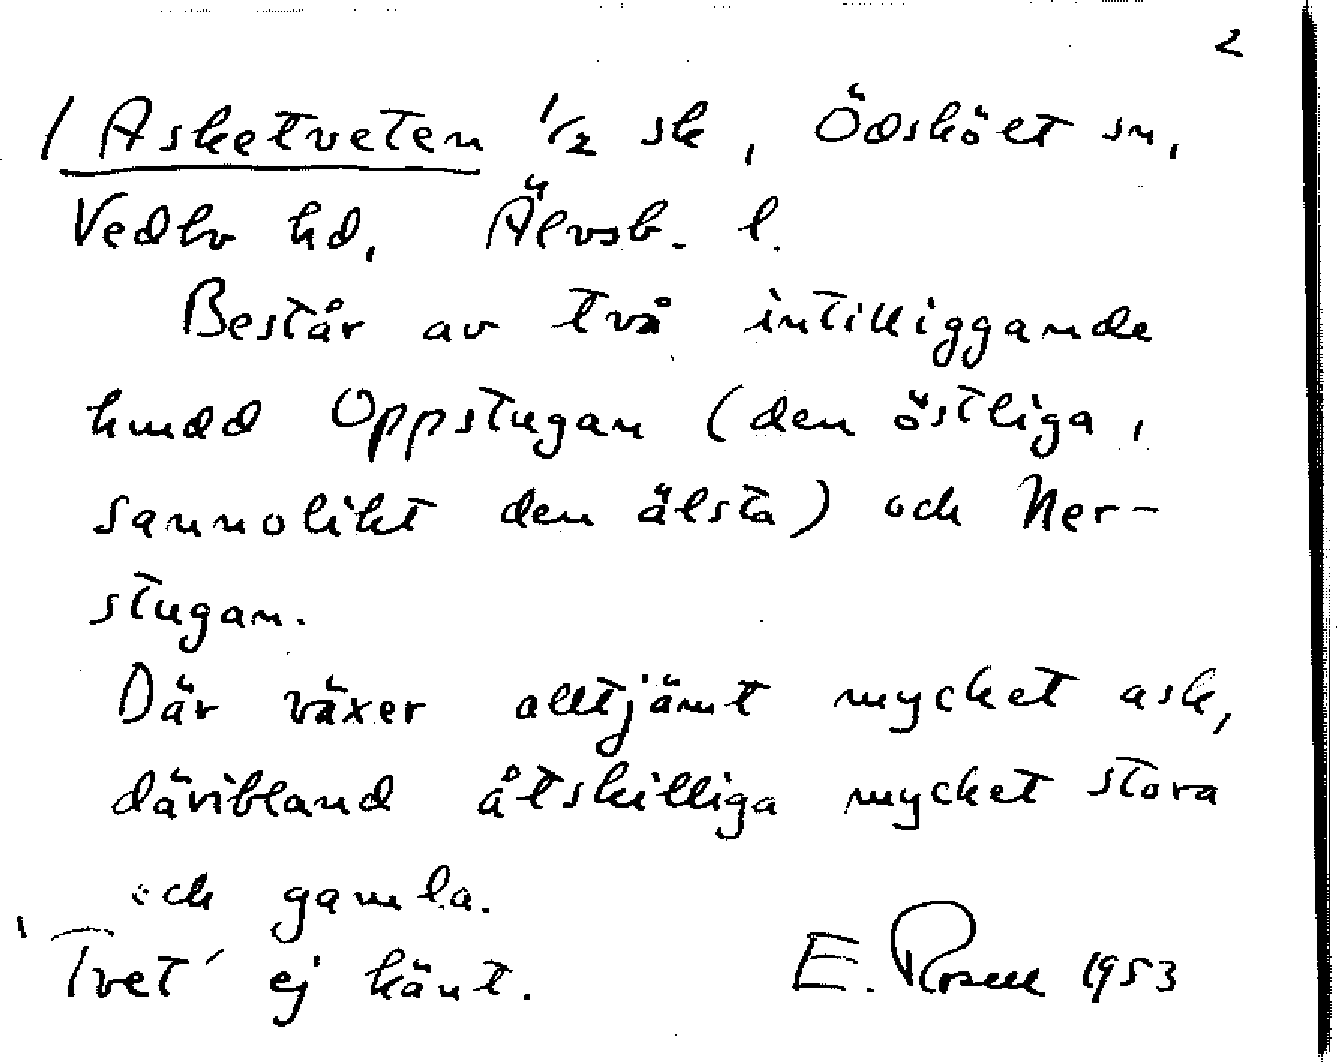 2
/ Asketveten 1/2 sk, Ödskölt sn,
Vedbo hd, Älvsb. l.
Består av två intilliggande
hmdd Oppstugan (den östliga,
sannolikt den älsta) och Ner-
stugan.
Där växer alltjämt mycket ask,
däribland åtskilliga mycket stora
och gamla.
'Tvet' ej känt.
E. Rosell 1953